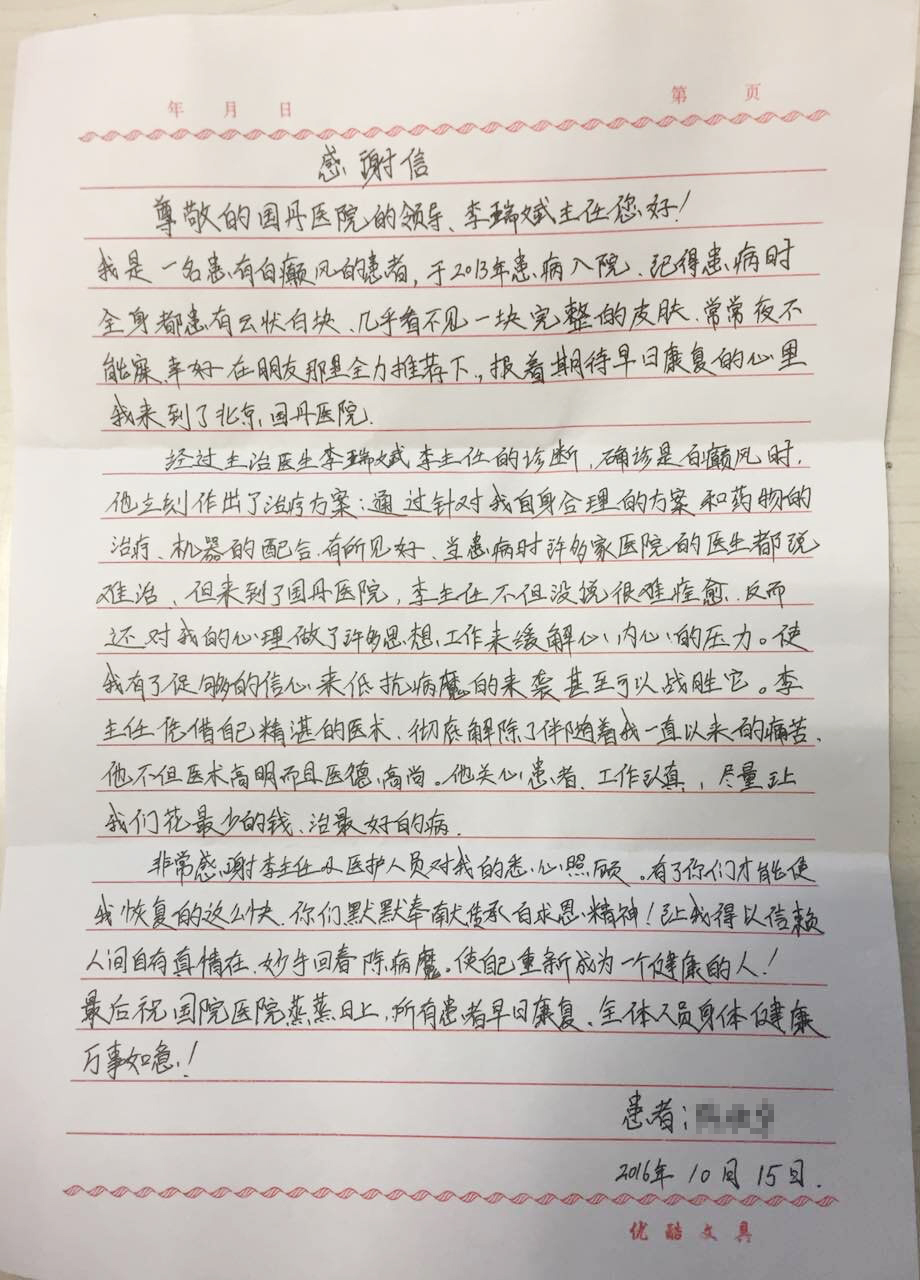 年 月 日 第 页
感谢信
尊敬的国丹医院的领导、李瑞斌主任您好!
我是一名患有白癜风的患者,于2013年患病入院、记得患病时
全身都患有云状白块、几乎看不见一块完整的皮肤、常常夜不
能寐、幸好在朋友那里全力推荐下,报着期待早日康复的心里
我来到了北京国丹医院.
经过主治医生李瑞斌李主任的诊断,确诊是白癜风时,
他立刻作出了治疗方案:通过针对我自身合理的方案和药物的
治疗、机器的配合、有所见好、当患病时许多家医院的医生都说
难治、但来到了国丹医院,李主任不但没说很难痊愈、反而
还对我的心理做了许多思想工作来缓解心内心的压力。使
我有了促够的信心来低抗病魔的来袭甚至可以战胜它。李
主任凭借自己精湛的医术、彻底解除了伴随着我一直以来的痛苦、
他不但医术高明而且医德高尚。他关心患者、工作认真,尽量让
我们花最少的钱、治最好的病.
非常感谢李主任及医护人员对我的悉心照顾。有了你们才能使
我恢复的这么快、你们默默奉献传承白求恩精神!让我得以信赖
人间自有真情在、妙手回春除病魔。使自己重新成为一个健康的人!
最后祝国院医院蒸蒸日上,所有患者早日康复、全体人员身体健康
万事如意!
患者:
2016年10月15日.
优酷文具